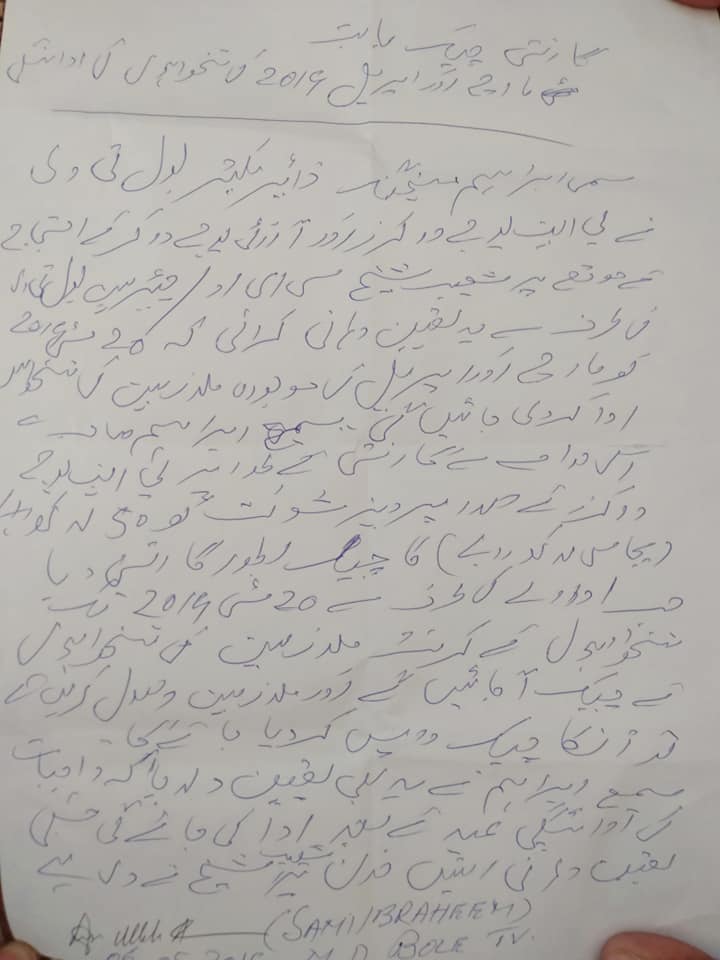 گارنٹی چیک بابت
مارچ اور اپریل 2019 کی تنخواہوں کی ادائیگی
سمی ابراہیم مینیجنگ ڈائیریکٹر بول ٹی وی
نے پی ایف یو جے ورکرز اور آر آئی یو جے ورکرز کے احتجاج
کے موقعے پر شعیب شیخ سی ای او / چیئرمین بول ٹی وی
کی طرف سے یہ یقین دہانی کرائی کہ 20 مئی 2019
کو مارچ اور اپریل کی موجودہ ملازمین کی تنخواہیں
ادا کردی جائیں گی۔ سمیع ابراہیم صاحب نے
اس حوالے سے گارنٹی کے طور پر پی ایف یو جے
ورکرز کے صدر پرویز شوکت کو 50 لاکھ
(پچاس لاکھ روپے) کا چیک بطور گارنٹی دیا
جب ادارے کی طرف سے 20 مئی 2019 تک
تنخواہوں کے کرنٹ ملازمین کی تنخواہوں
کے چیک آ جائیں گے اور ملازمین وصول کرلیں گے
تو انکا چیک واپس کردیا جائے گا۔
سمیع ابراہیم نے یہ بھی یقین دلایا کہ واجبات
کی ادائیگی عید کے بعد ادا کی جائے گی جسکی
یقین دہانی انہیں شعیب شیخ نے دی ہے
(SAMI IBRAHEEM)
05-05-2019 M.D BOLE TV.